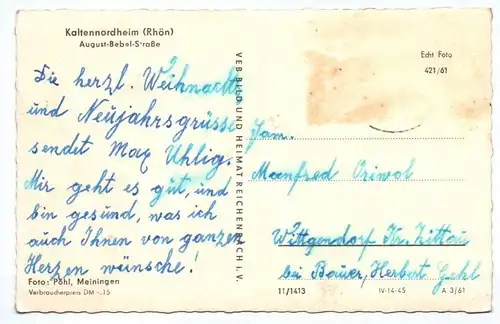 Kaltennordheim (Rhön)
August-Bebel-Straße
Die herzl. Weihnachts
und Neujahrsgrüsse
sendet Max Uhlig.
Mir geht es gut, und
bin gesund, was ich
auch Ihnen von ganzen
Herzen wünsche!
Foto: Pöhl, Meiningen
Verbraucherpreis DM -,15
VEB BILD UND HEIMAT REICHENBACH i. V.
Echt Foto
421/61
Fam.
Manfred
Wittgendorf Kr. Zittau
bei Bauer, Herbert
11/1413
IV-14-45
A 3/61